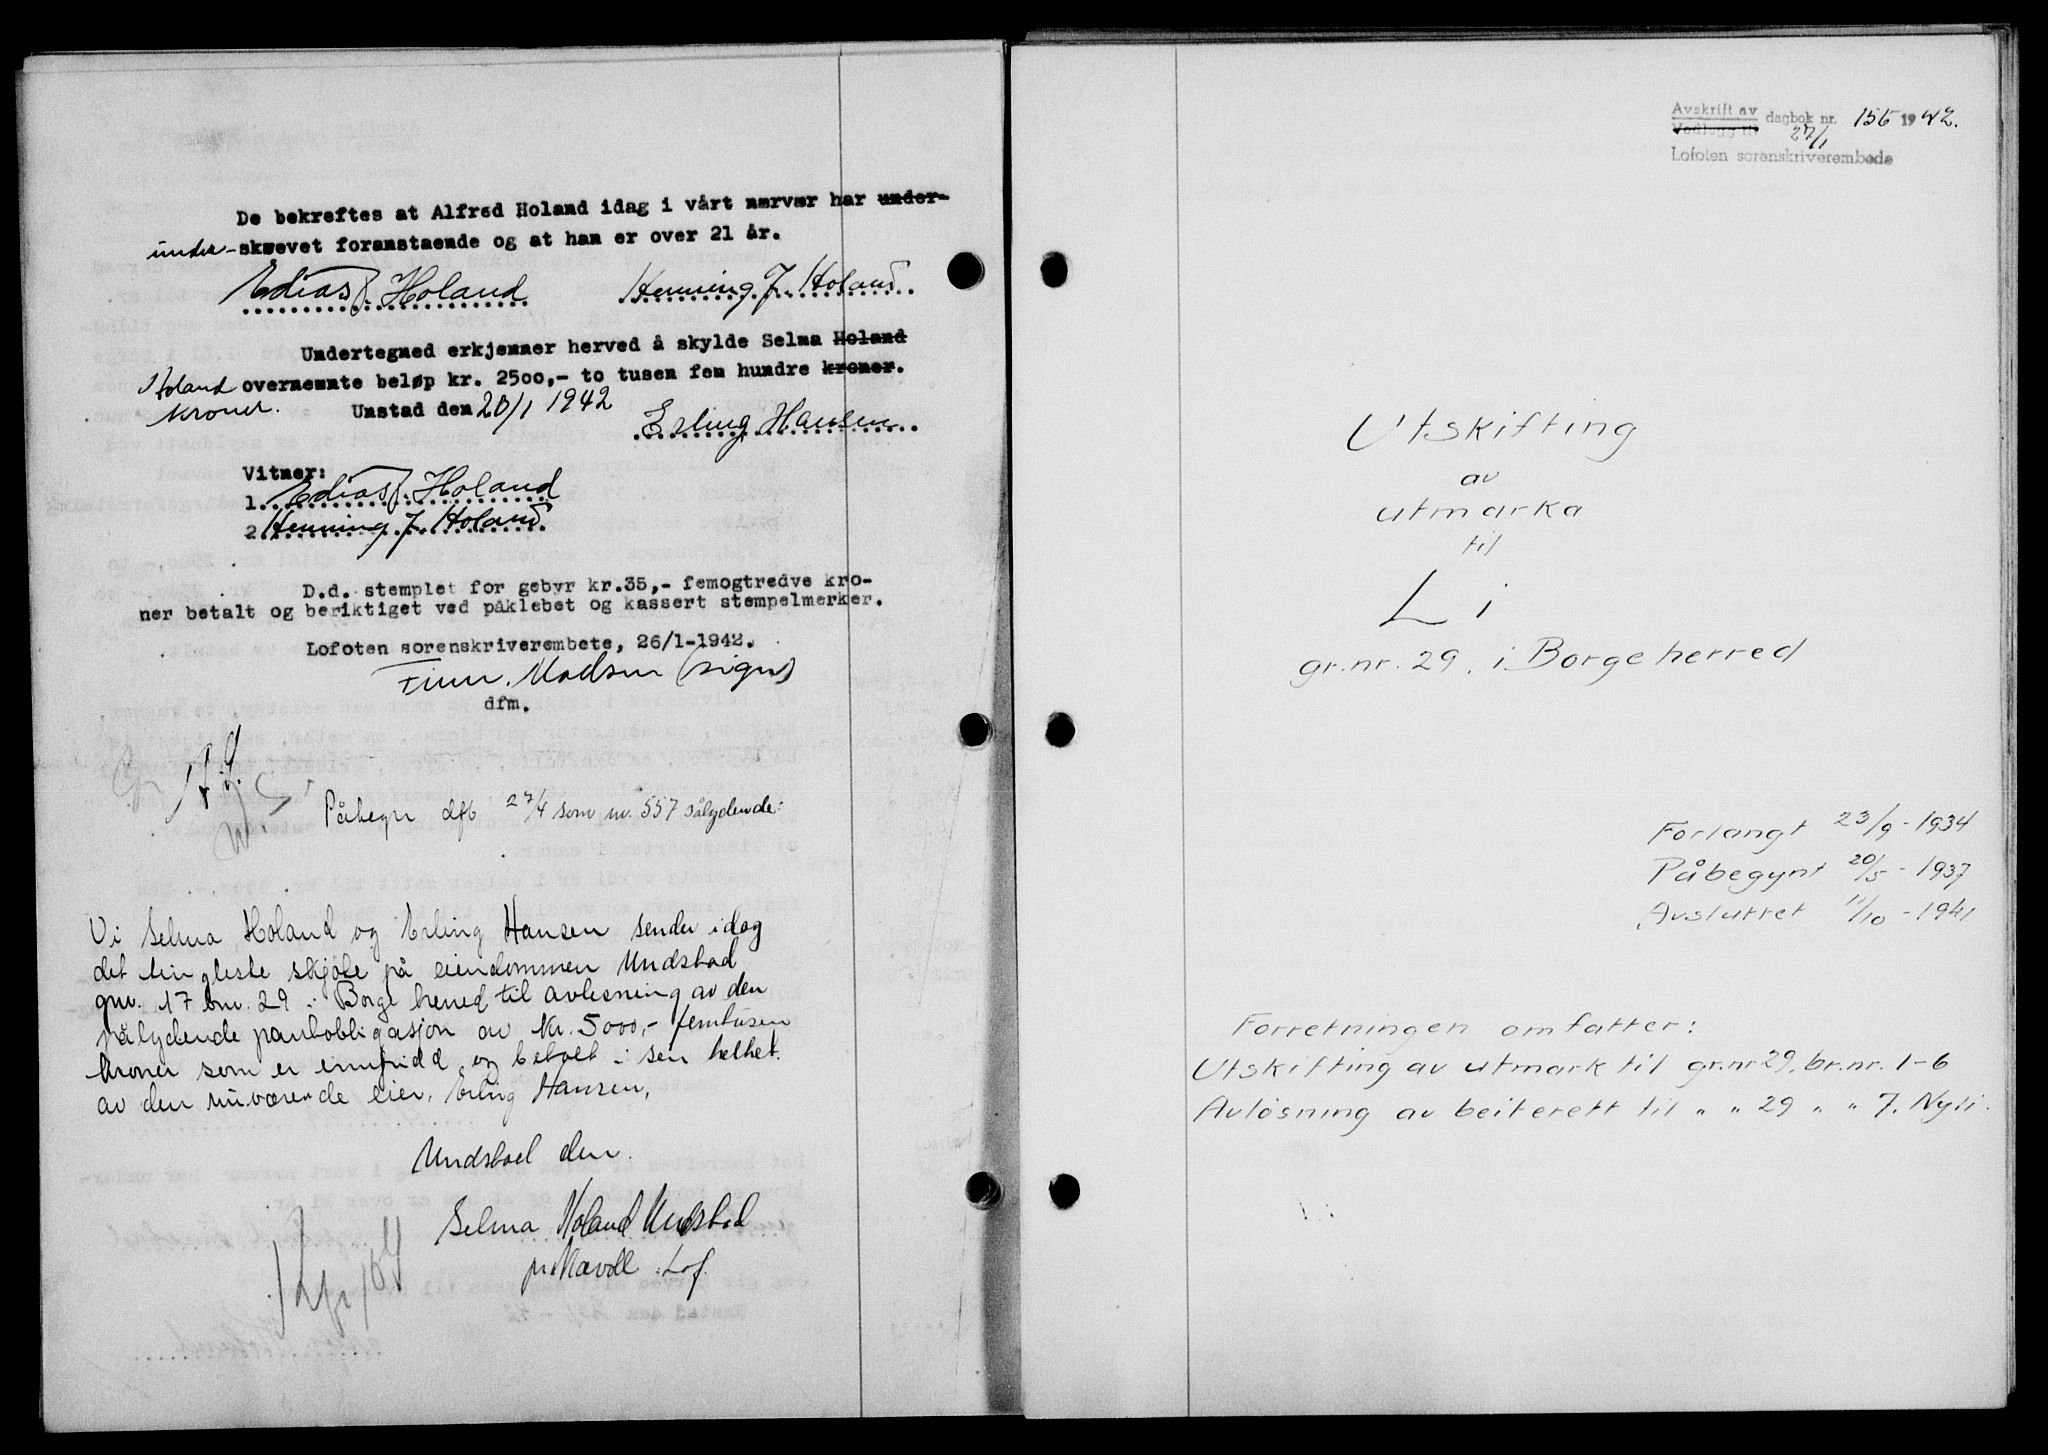 De bekreftes at Alfred Holand idag i vårt nærvær har under-
under-skrevet foranstaende og at han er over 21 år.
Edias J. Holand Henning J. Holand
Undertegned erkjenner herved å skylde Selma Holand
Holand overnemnte beløp kr. 2500,- to tusen fem hundre kroner.
kroner. Unstad den 20/1 1942
Erling Hansen
Vitner:
1. Edias J. Holand
2 Henning J. Holand
D.d. stemplet for gebyr kr.35,- femogtredve kro-
ner betalt og beriktiget ved påklebet og kassert stempelmerker.
Lofoten sorenskriverembete, 26/1-1942.
Finn Madsen (sign)
dfm.
Påtegn dfb 27/4 som nr. 557 sålydende:
Vi Selma Holand og Erling Hansen sender idag
det tingleste skjöte på eiendommen Undstad
gnr. 17 bnr. 29 i Borge herred til avlesning av den
pålydende pantobligasjon av Kr. 5000,- femtusen
kroner som er innfridd og betalt i sen helhet.
av den nuværende eier, Erling Hansen,
Undstad den.
Selma Holand Undstad
pr. Lof.
Avskrift av
Vedlegg til dagbok nr. 156 1942.
27/1
Lofoten sorenskriverembede
Utskifting
av
utmarka
til
Li
gr.nr. 29. i Borge herred
Forlangt 23/9 - 1934
Påbegynt 20/5 - 1937
Avsluttet 11/10 - 1941
Forretningen omfatter:
Utskifting av utmark til gr.nr 29, br.nr. 1-6
Avløsning av beiterett til " " 29 " " 7. Nyli.